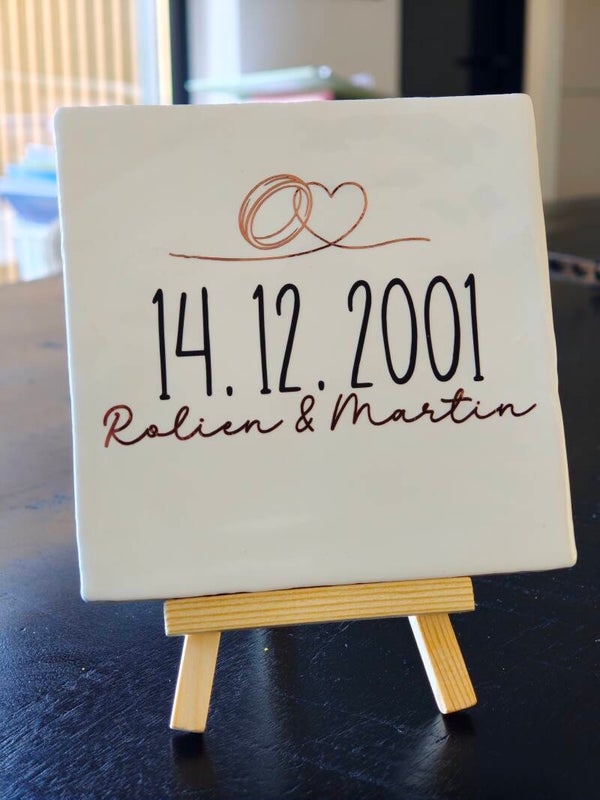 14.12.2001
Rolien & Martin